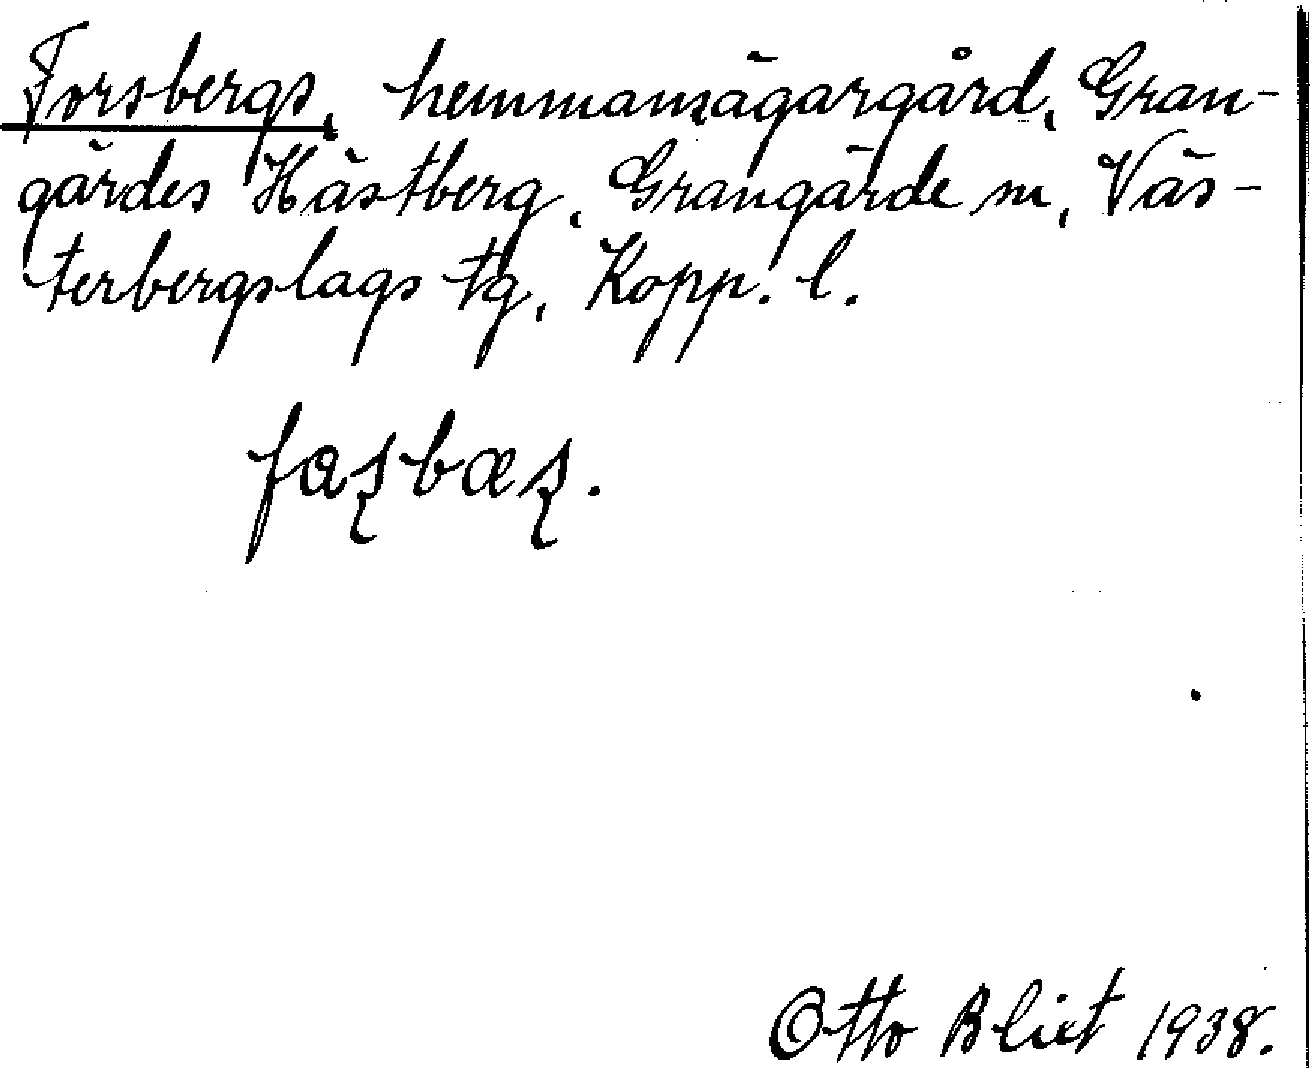 Forsbergs, hemmansägargård, Gran-
gärdes Hästberg, Grangärde sn, Väs-
terbergslags tg, Kopp. l.
faʂbæʂ.
Otto Blixt 1938.